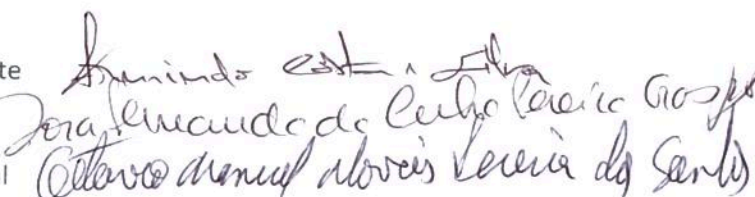 te Armindo Costa e Silva
Fernando da Cunha Pereira
l Octavio Manuel Novais Pereira dos Santos